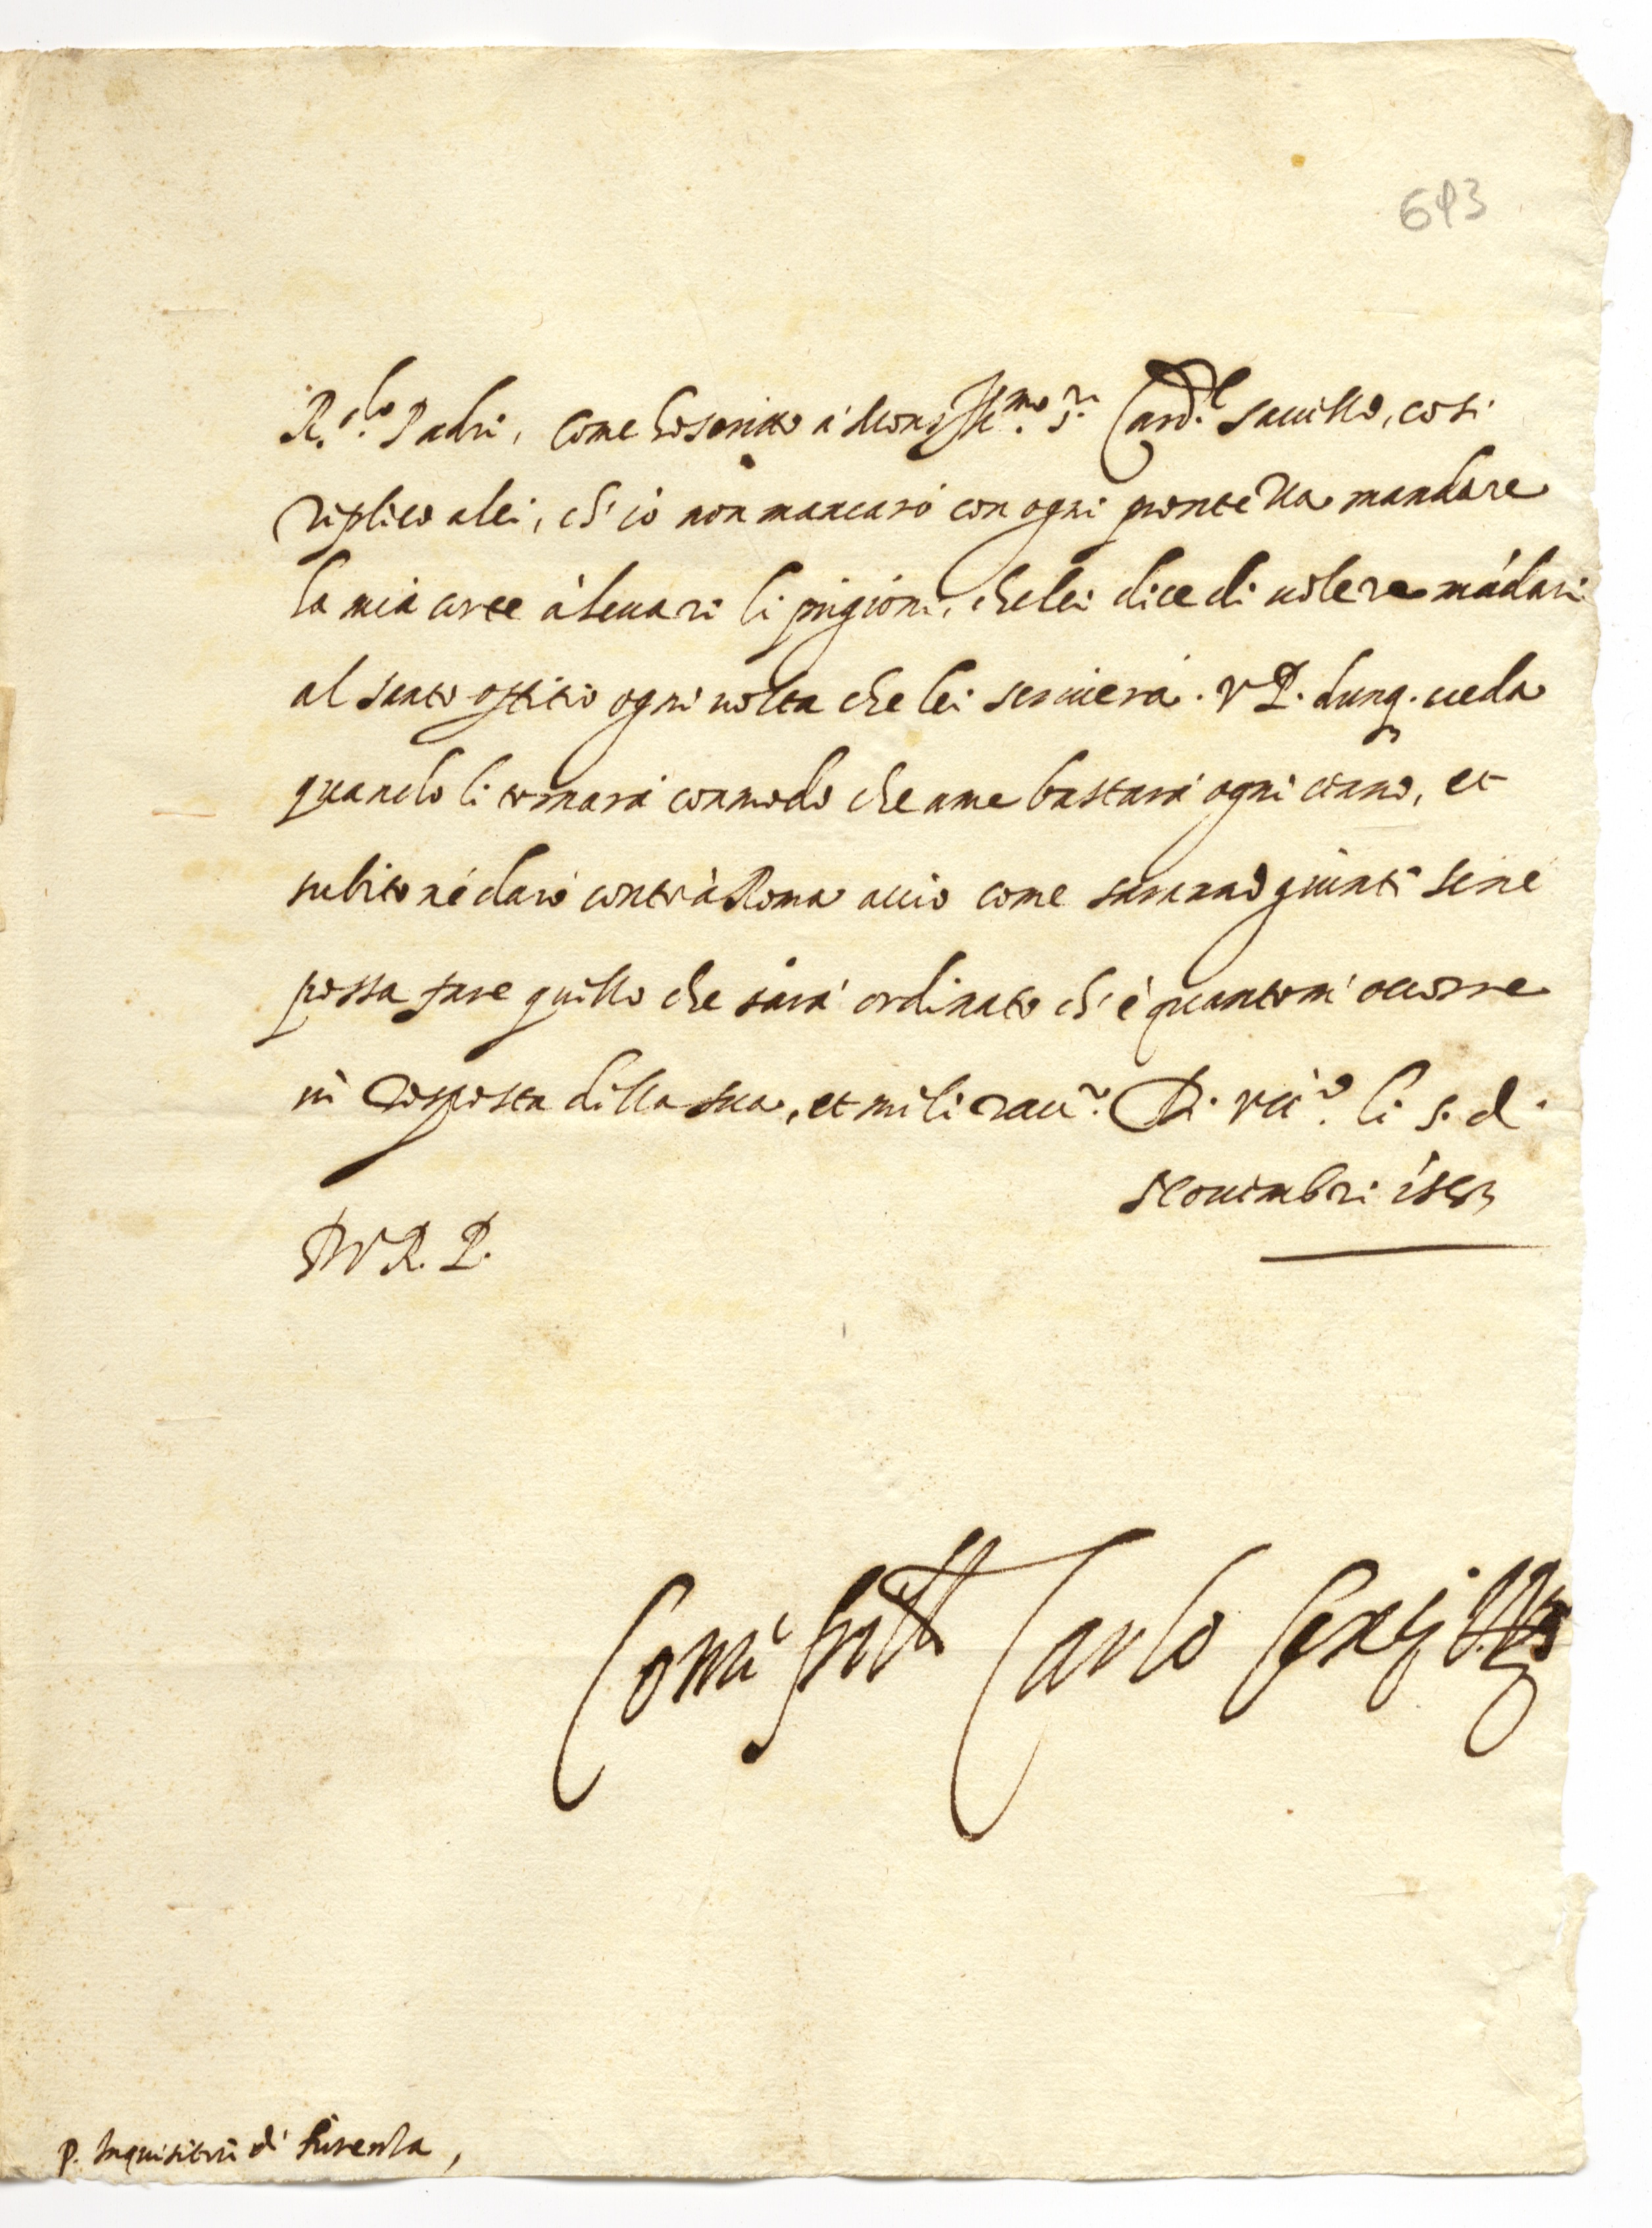 693
R.do Padri, come hò scritto à Mons.r Ill.mo S.r Card.l Savello, cosi
riplico a lei, ch'io non mancarò con ogni prontezza mandare
la mia corte à levari li prigioni, che lei dice di volere mãdari
al santo offitio ogni volta che lei scriverà. V P. dunq. veda
quando li tornarà commodo che a me bastarà ogni cenno, et
subito nè darò conto à Roma acciò come saranno giunti se ne
possa fare quello che sarà ordinato ch'è quanto mi occorre
in risposta dilla sua, et mi li racc.o Di li 5. d.
Novimbri 1583
D V R. P.
Come fratello Carlo
p. Inquisitori di Firenza,